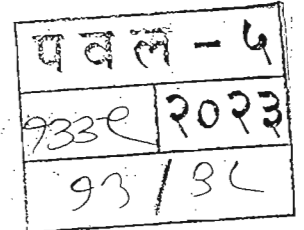 पवल - ५
१३३९ २०२३
१३/३८